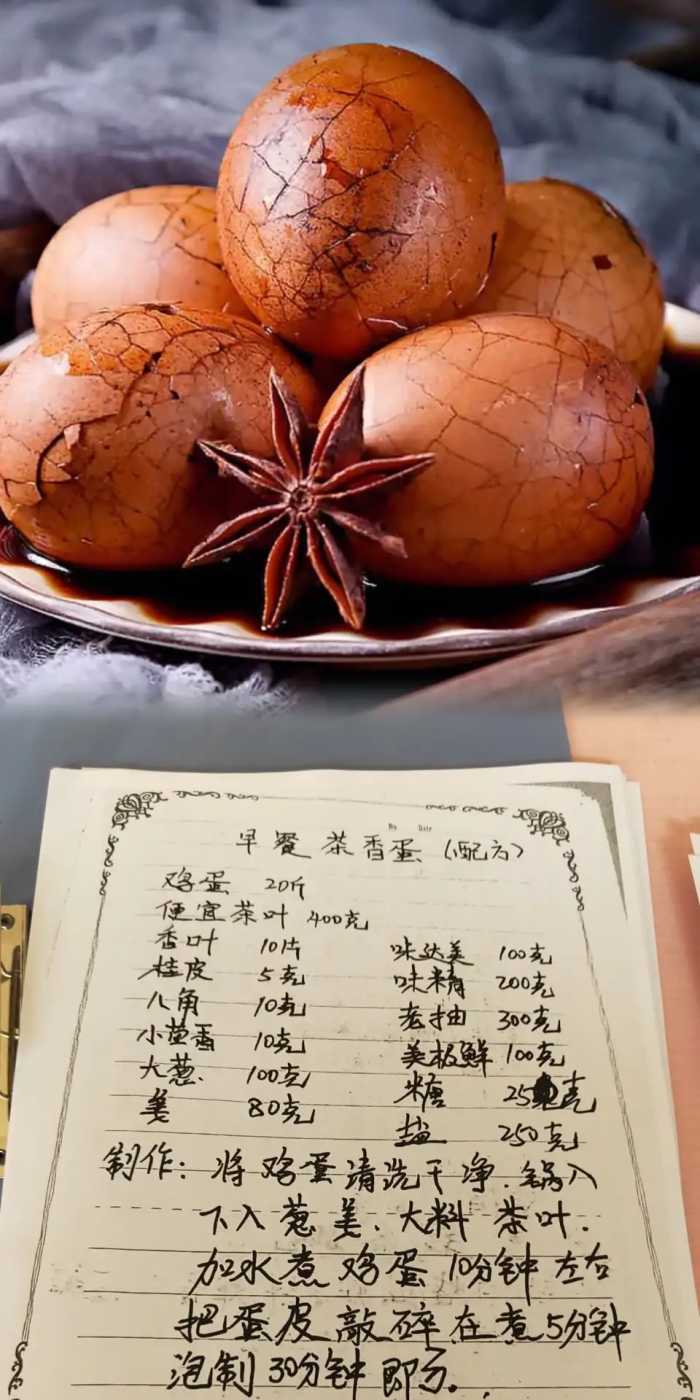 No Date
早餐茶香蛋(配方)
鸡蛋 20斤
便宜茶叶 400克
香叶 10片
桂皮 5克
八角 10克
小茴香 10克
大葱. 100克
姜 80克
味达美 100克
味精 200克
老抽 300克
美极鲜 100克
糖 25克
盐 250克
制作: 将鸡蛋清洗干净.锅入
下入葱姜.大料茶叶.
加水煮鸡蛋10分钟左右
把蛋皮敲碎在煮5分钟
泡制30分钟即可.